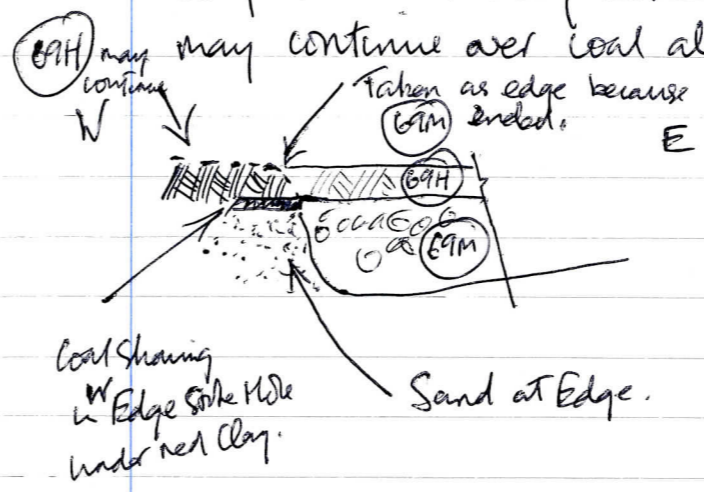 69H may may continue over coal al
continue Taken as edge because
W 69M ended. E
69H
69M
Coal Showing
in Edge Stake Hole
under red Clay.
Sand at Edge.